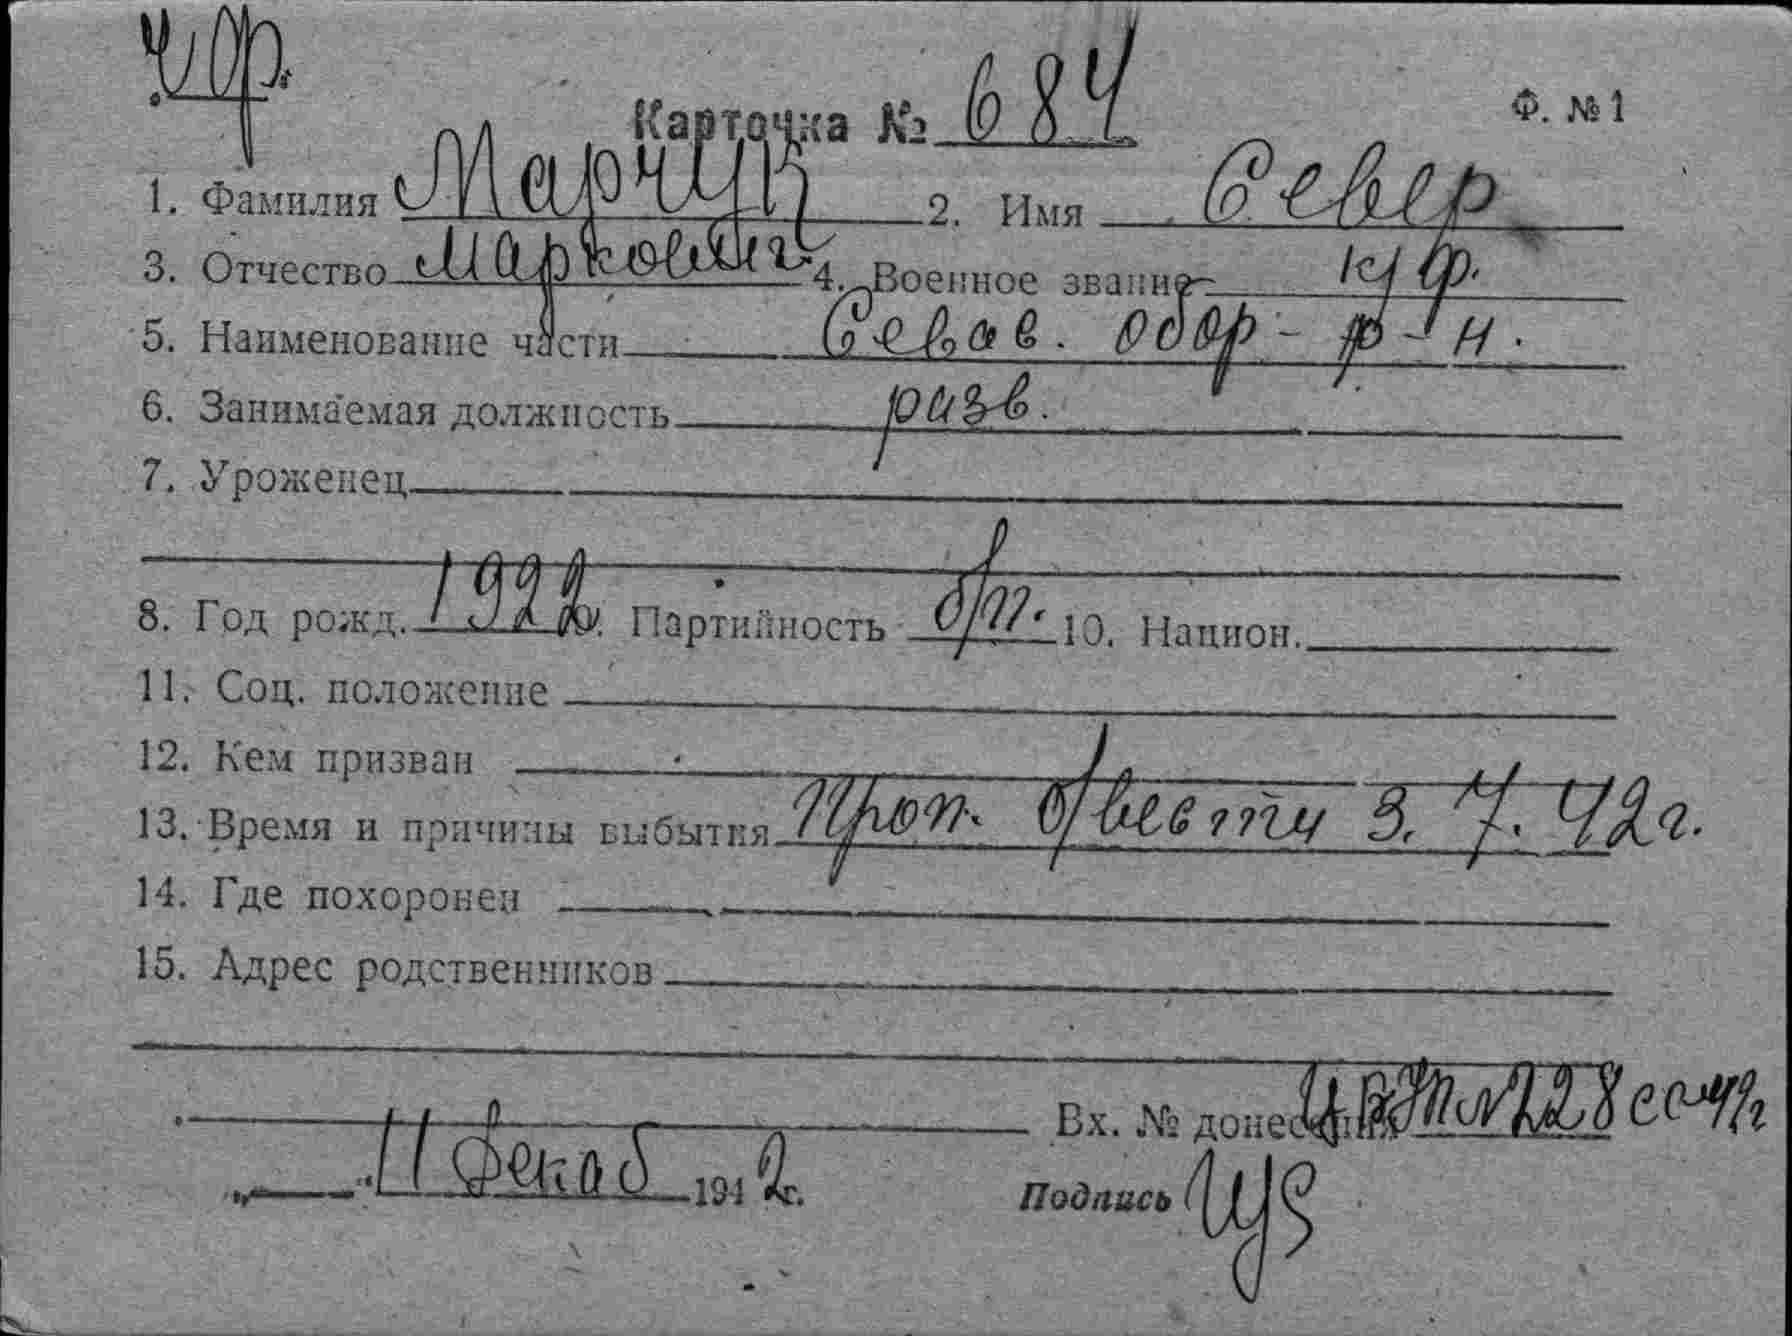 Ф. №1
Карточка № 684
1. Фамилия Марчук 2. Имя Север
3. Отчество Маркович 4. Военное звание к/ф.
5. Наименование части Севас. обор- р-н.
6. Занимаемая должность разв.
7. Уроженец
8. Год рожд. 1922 Партийность б/п. 10. Национ.
11. Соц. положение
12. Кем призван
13. Время и причины выбытия Проп. б/вести 3. 7. 42г.
14. Где похоронен
15. Адрес родственников
Вх. № донесения 28сс
" " 11 декаб 1942г.
Подпись